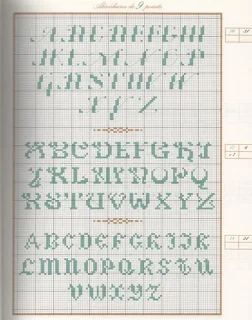 Abécédaires de 9 points
ABCDEFGHI
JKLMNOP
QRSTUVW
XYZ
ABCDEFGHI
JKLMNOPQ
RSTUVWXYZ
ABCDEFGHIJK
LMNOPQRSTU
VWXYZ